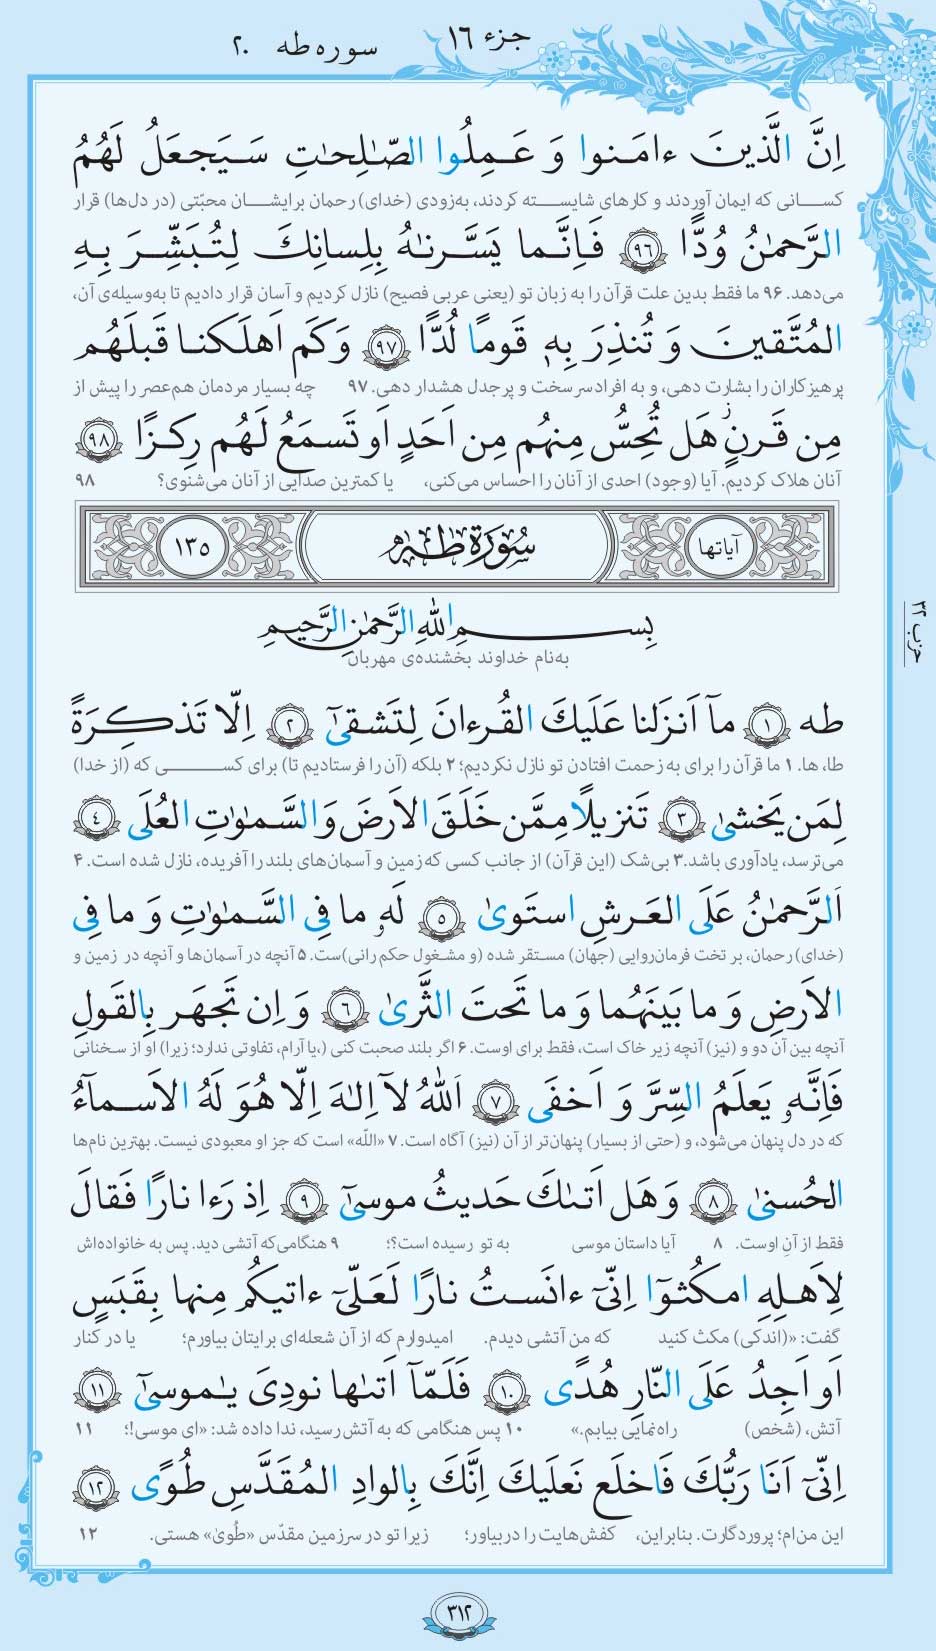 جزء ۱۶
سوره طه ۲۰
اِنَّ الَّذینَ ءامَنوا وَ عَمِلُوا الصّٰلِحٰتِ سَیَجعَلُ لَهُمُ
کسانی که ایمان آوردند و کارهای شایسته کردند، به‌زودی (خدای) رحمان برایشان محبّتی (در دل‌ها) قرار
الرَّحمٰنُ وُدًّا ﴿۹۶﴾ فَاِنَّما یَسَّرنٰهُ بِلِسانِکَ لِتُبَشِّرَ بِهِ
می‌دهد. ۹۶ ما فقط بدین علت قرآن را به زبان تو (یعنی عربی فصیح) نازل کردیم و آسان قرار دادیم تا به‌وسیله‌ی آن،
المُتَّقینَ وَ تُنذِرَ بِهٖ قَومًا لُدًّا ﴿۹۷﴾ وَ کَم اَهلَکنا قَبلَهُم
پرهیزکاران را بشارت دهی، و به افراد سرسخت و پرجدل هشدار دهی. ۹۷ چه بسیار مردمان هم‌عصر را پیش از
مِن قَرنٍ هَل تُحِسُّ مِنهُم مِن اَحَدٍ اَو تَسمَعُ لَهُم رِکزًا ﴿۹۸﴾
آنان هلاک کردیم. آیا (وجود) احدی از آنان را احساس می‌کنی، یا کمترین صدایی از آنان می‌شنوی؟ ۹۸
آیاتها سُورَةُ طٰهٰ ۱۳۵
حزب ۳۲
بِسمِ اللهِ الرَّحمٰنِ الرَّحیمِ
به‌نام خداوند بخشنده‌ی مهربان
طه ﴿۱﴾ مآ اَنزَلنا عَلَیکَ القُرءانَ لِتَشقیٰٓ ﴿۲﴾ اِلّا تَذکِرَةً
طا، ها. ۱ ما قرآن را برای به زحمت افتادن تو نازل نکردیم؛ ۲ بلکه (آن را فرستادیم تا) برای کسی که (از خدا)
لِمَن یَخشیٰ ﴿۳﴾ تَنزیلًا مِمَّن خَلَقَ الاَرضَ وَ السَّمٰوٰتِ العُلَی ﴿۴﴾
می‌ترسد، یادآوری باشد. ۳ بی‌شک (این قرآن) از جانب کسی که زمین و آسمان‌های بلند را آفریده، نازل شده است. ۴
اَلرَّحمٰنُ عَلَی العَرشِ استَویٰ ﴿۵﴾ لَهٗ ما فِی السَّمٰوٰتِ وَ ما فِی
(خدای) رحمان، بر تخت فرمان‌روایی (جهان) مستقر شده (و مشغول حکم رانی)ست. ۵ آنچه در آسمان‌ها و آنچه در زمین و
الاَرضِ وَ ما بَینَهُما وَ ما تَحتَ الثَّریٰ ﴿۶﴾ وَ اِن تَجهَر بِالقَولِ
آنچه بین آن دو و (نیز) آنچه زیر خاک است، فقط برای اوست. ۶ اگر بلند صحبت کنی (،یا آرام، تفاوتی ندارد؛ زیرا) او از سخنانی
فَاِنَّهٗ یَعلَمُ السِّرَّ وَ اَخفَی ﴿۷﴾ اَللهُ لآ اِلٰهَ اِلّا هُوَ لَهُ الاَسمآءُ
که در دل پنهان می‌شود، و (حتی از بسیار) پنهان‌تر از آن (نیز) آگاه است. ۷ «اللّه» است که جز او معبودی نیست. بهترین نام‌ها
الحُسنیٰ ﴿۸﴾ وَ هَل اَتىٰکَ حَدیثُ موسیٰٓ ﴿۹﴾ اِذ رَءا نارًا فَقالَ
فقط از آنِ اوست. ۸ آیا داستان موسی به تو رسیده است؟؛ ۹ هنگامی‌که آتشی دید. پس به خانواده‌اش
لِاَهلِهِ امکُثوٓا اِنّیٓ ءانَستُ نارًا لَعَلّیٓ ءاتیکُم مِنها بِقَبَسٍ
گفت: «(اندکی) مکث کنید که من آتشی دیدم. امیدوارم که از آن شعله‌ای برایتان بیاورم؛ یا در کنار
اَو اَجِدُ عَلَی النّارِ هُدًی ﴿۱۰﴾ فَلَمّآ اَتىٰها نودِیَ یٰموسیٰٓ ﴿۱۱﴾
آتش، (شخص) راه‌نمایی بیابم.» ۱۰ پس هنگامی که به آتش رسید، ندا داده شد: «ای موسی!؛ ۱۱
اِنّیٓ اَنَا رَبُّکَ فَاخلَع نَعلَیکَ اِنَّکَ بِالوادِ المُقَدَّسِ طُوًی ﴿۱۲﴾
این من‌ام؛ پروردگارت. بنابراین، کفش‌هایت را دربیاور؛ زیرا تو در سرزمین مقدّس «طُویٰ» هستی. ۱۲
۳۱۲